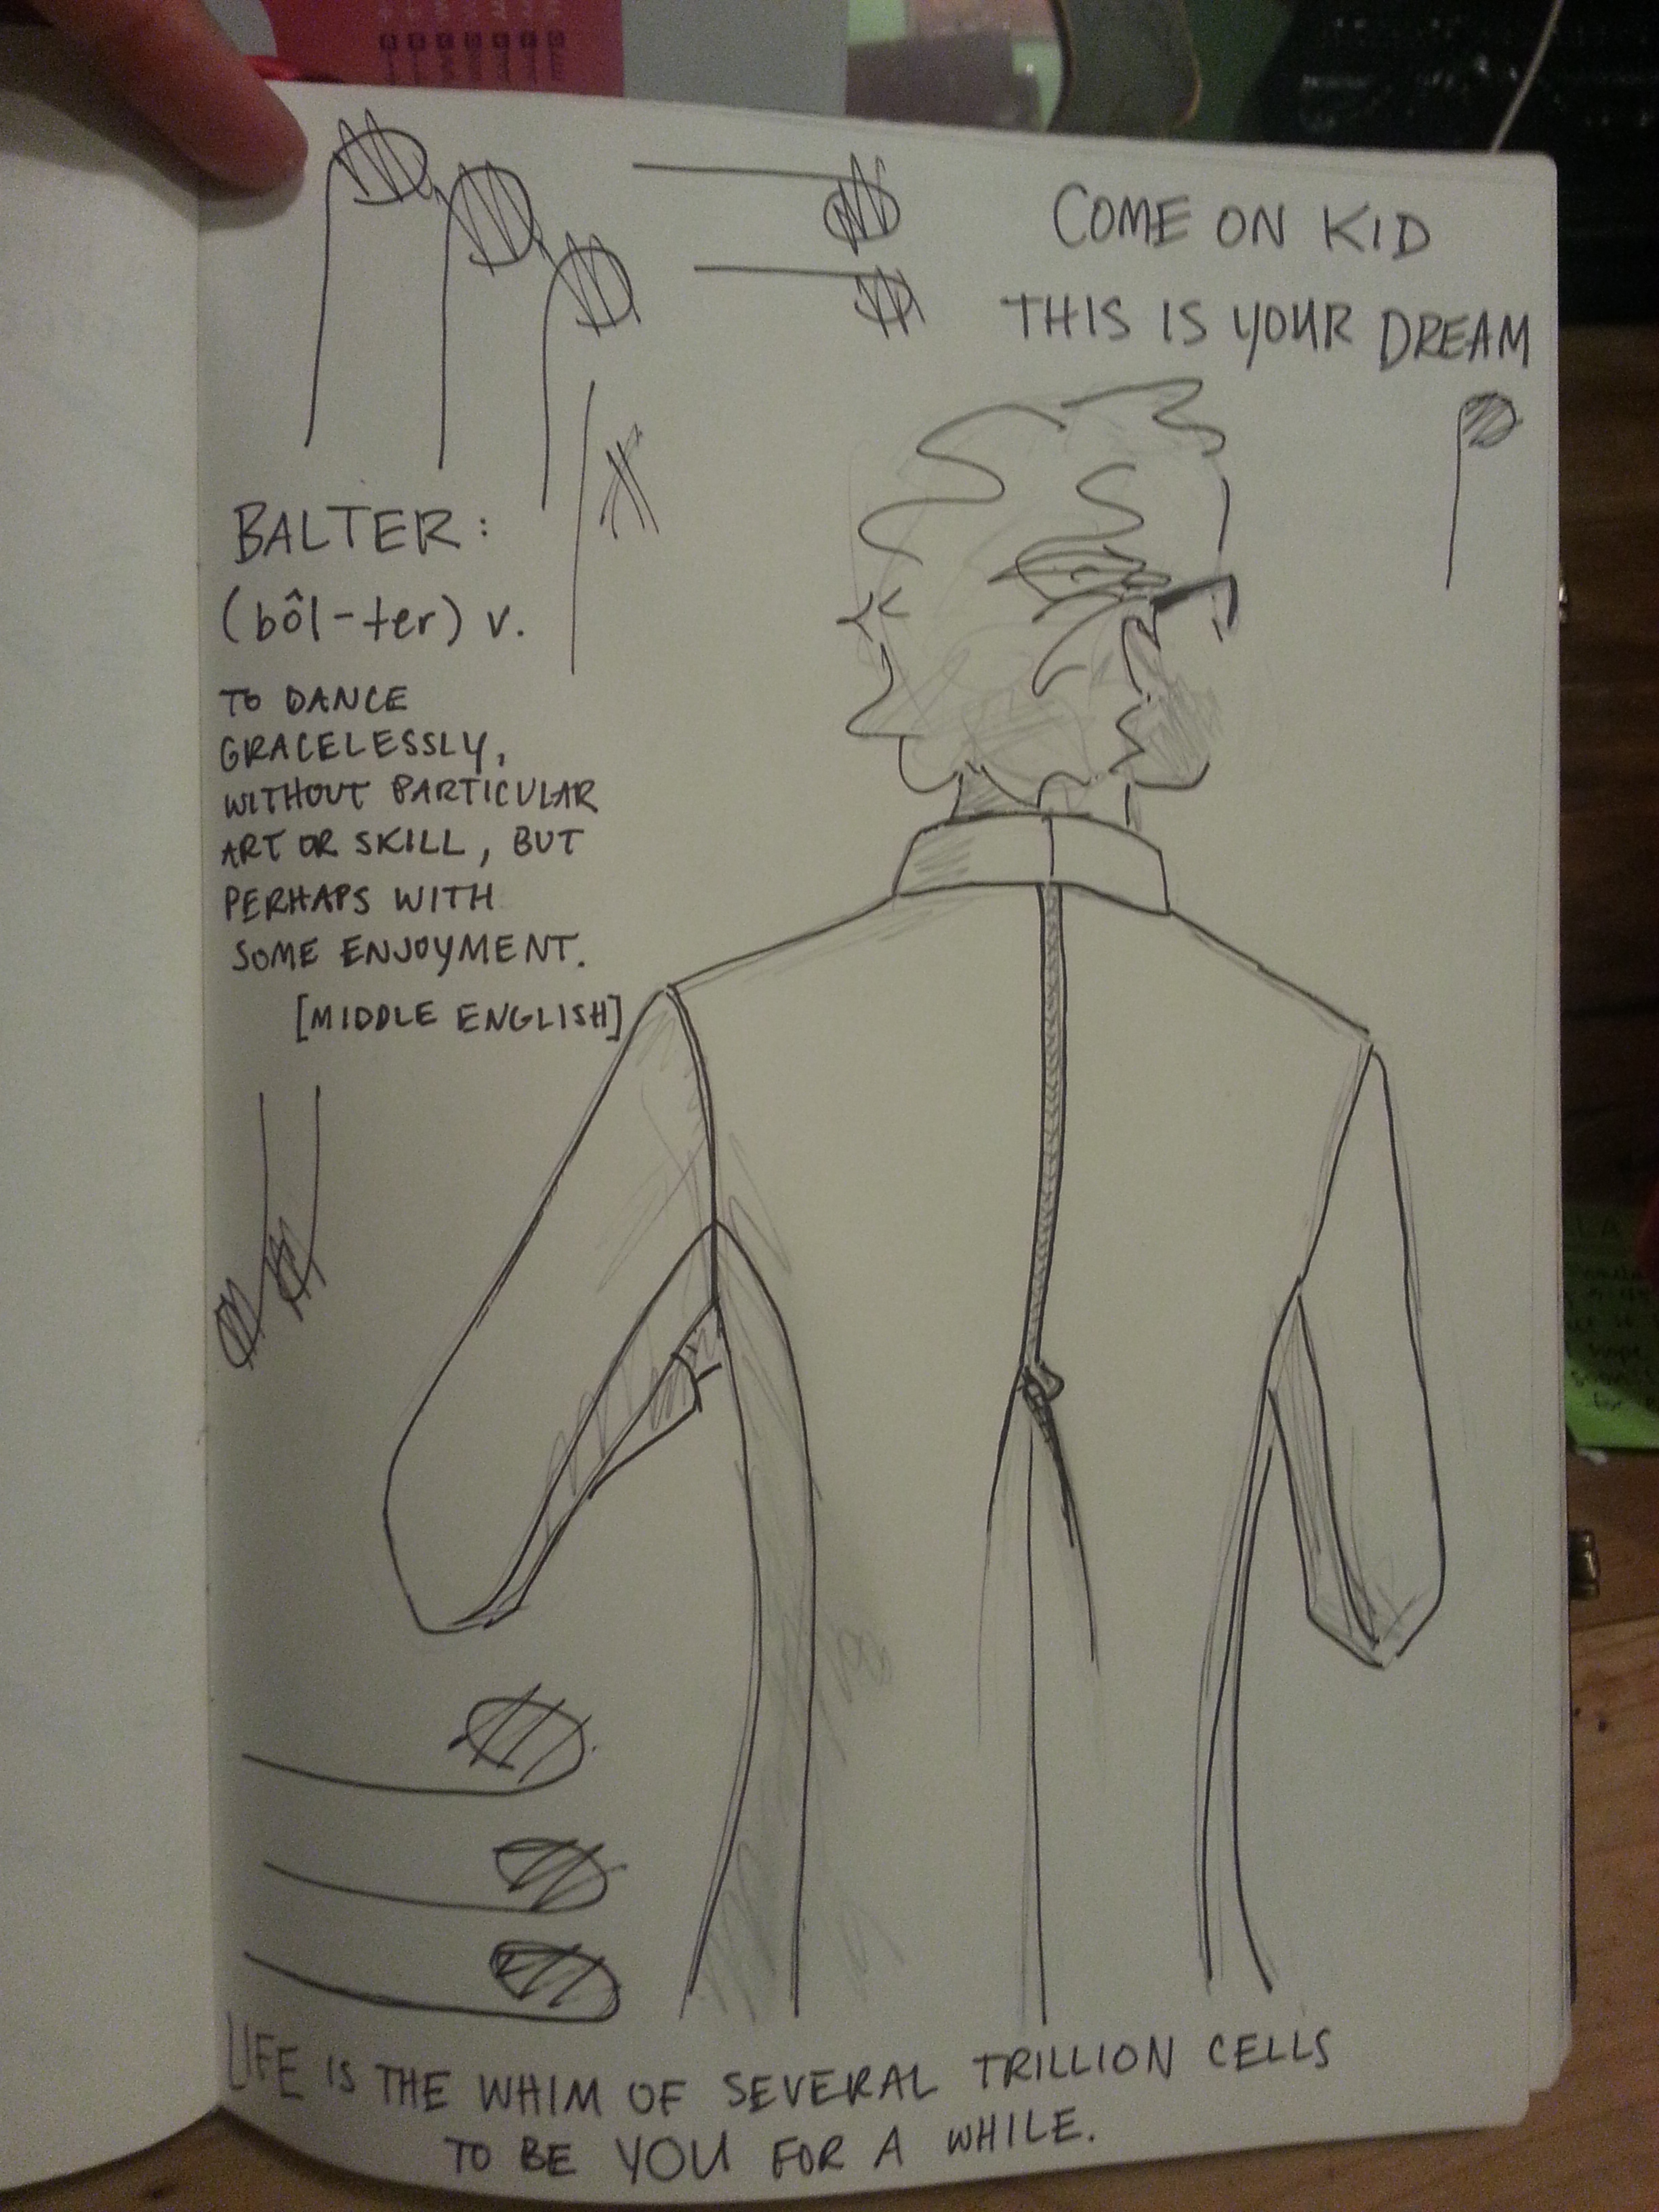 COME ON KID
THIS IS YOUR DREAM
BALTER:
(bôl-ter) v.
TO DANCE
GRACELESSLY,
WITHOUT PARTICULAR
ART OR SKILL, BUT
PERHAPS WITH
SOME ENJOYMENT.
[MIDDLE ENGLISH]
LIFE IS THE WHIM OF SEVERAL TRILLION CELLS
TO BE YOU FOR A WHILE.